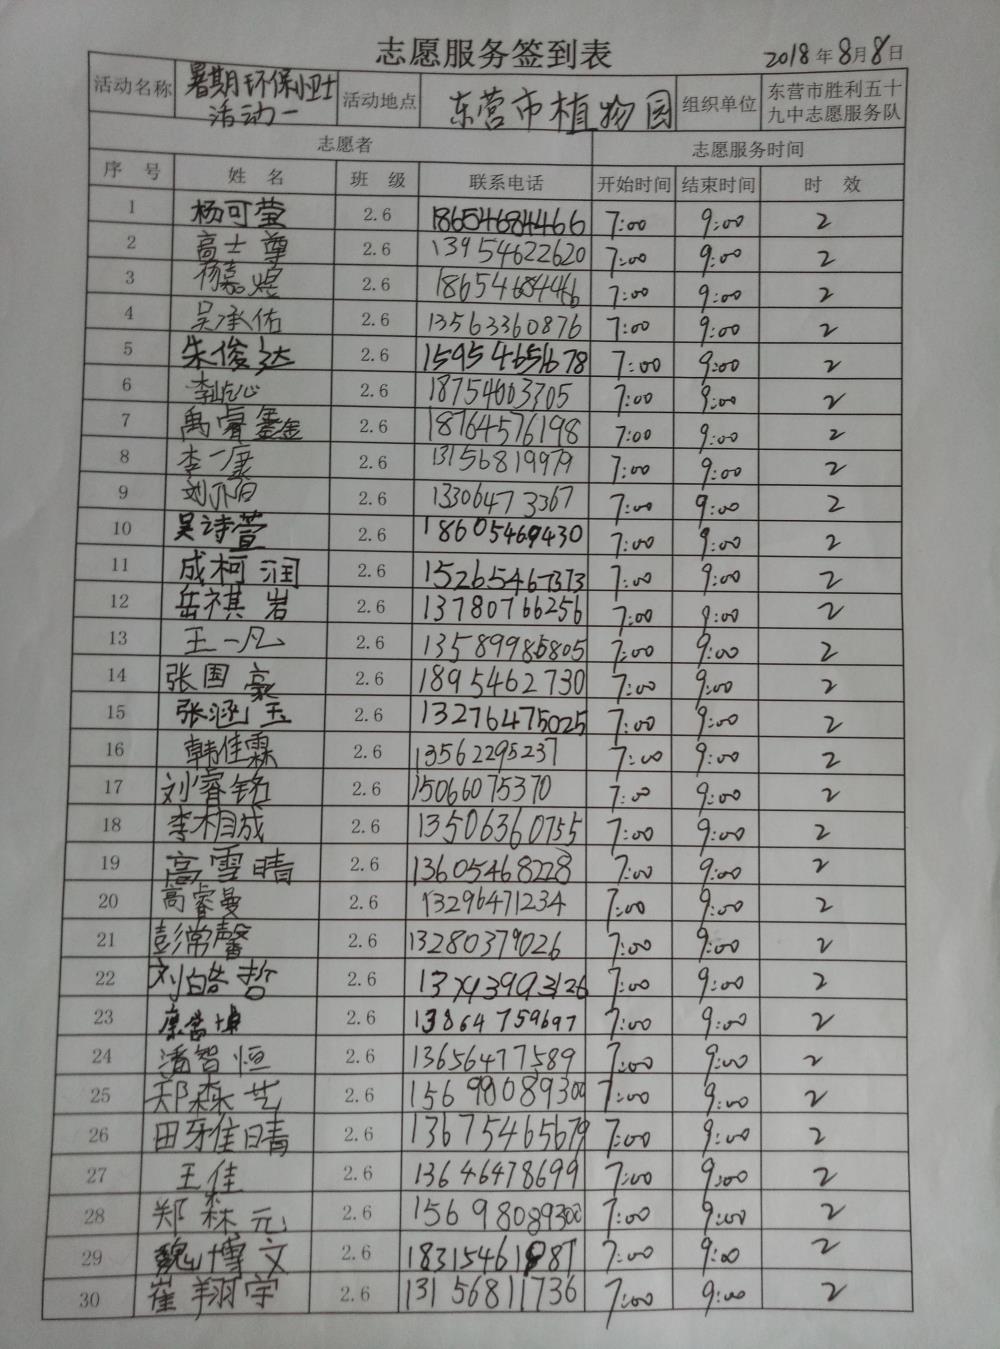 志愿服务签到表
2018年8月8日
活动名称 暑期环保小卫士活动一 活动地点 东营市植物园 组织单位 东营市胜利五十九中志愿服务队
志愿者 志愿服务时间
序 号 姓 名 班 级 联系电话 开始时间 结束时间 时 效
1 杨可莹 2.6 18654684466 7:00 9:00 2
2 高士尊 2.6 13954622620 7:00 9:00 2
3 杨嘉煜 2.6 18654684466 7:00 9:00 2
4 吴承佑 2.6 13563360876 7:00 9:00 2
5 朱俊达 2.6 15954651678 7:00 9:00 2
6 李屹心 2.6 18754603705 7:00 9:00 2
7 禹睿鑫 2.6 18764576198 7:00 9:00 2
8 李一康 2.6 13156819979 7:00 9:00 2
9 刘 2.6 13306473367 7:00 9:00 2
10 吴诗萱 2.6 18605469430 7:00 9:00 2
11 成柯润 2.6 15265467373 7:00 9:00 2
12 岳祺岩 2.6 13780766256 7:00 9:00 2
13 王一凡 2.6 13589985805 7:00 9:00 2
14 张国豪 2.6 1895462730 7:00 9:00 2
15 张涵玉 2.6 13276475025 7:00 9:00 2
16 韩佳霖 2.6 13562295237 7:00 9:00 2
17 刘睿铭 2.6 15066075370 7:00 9:00 2
18 李相成 2.6 13506360755 7:00 9:00 2
19 高雪晴 2.6 13605468228 7:00 9:00 2
20 高睿曼 2.6 13296471234 7:00 9:00 2
21 彭常馨 2.6 13280379026 7:00 9:00 2
22 刘皓哲 2.6 7:00 9:00 2
23 2.6 13864759697 7:00 9:00 2
24 潘智恒 2.6 13656477589 7:00 9:00 2
25 郑森艺 2.6 15698089300 7:00 9:00 2
26 田牙佳晴 2.6 13675465679 7:00 9:00 2
27 王佳 2.6 13646478699 7:00 9:00 2
28 郑森元 2.6 15698089300 7:00 9:00 2
29 魏博文 2.6 18315461987 7:00 9:00 2
30 崔翔宇 2.6 13156811736 7:00 9:00 2